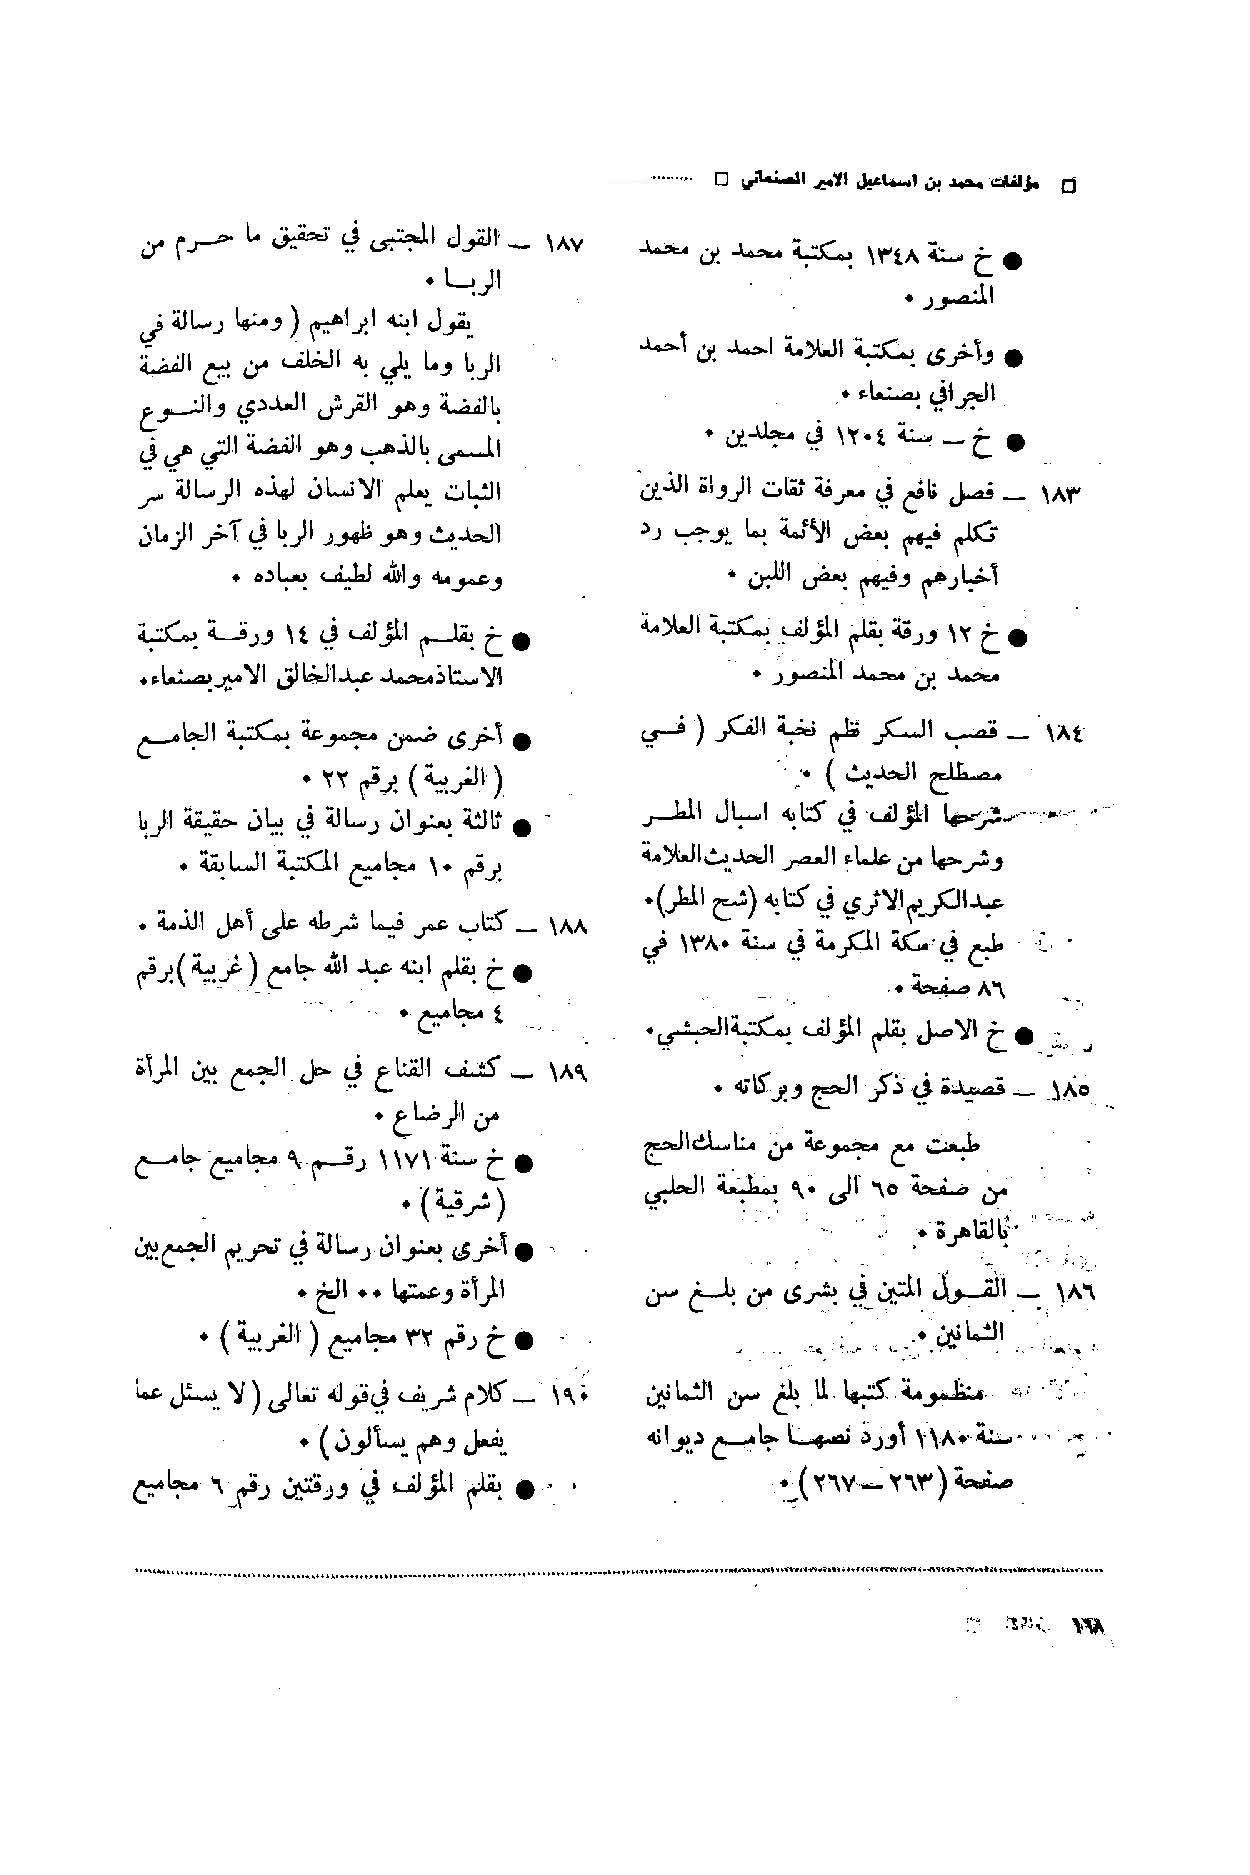 □ مؤلفات محمد بن اسماعيل الامير الصنعاني □ ........
● خ سنة ١٣٤٨ بمكتبة محمد بن محمد
المنصور ٠
● وأخرى بمكتبة العلامة احمد بن أحمد
الجرافي بصنعاء ٠
● خ ــ سنة ١٢٠٤ في مجلدين ٠
١٨٣ ــ فصل نافع في معرفة ثقات الرواة الذين
تكلم فيهم بعض الأئمة بما يوجب رد
أخبارهم وفيهم بعض اللبن ٠
● خ ١٢ ورقة بقلم المؤلف بمكتبة العلامة
محمد بن محمد المنصور ٠
١٨٤ ــ قصب السكر نظم نخبة الفكر ( فــي
مصطلح الحديث ) ٠
شرحها المؤلف في كتابه اسبال المطــر
وشرحها من علماء العصر الحديث العلامة
عبدالكريم الاثري في كتابه (شح المطر)٠
طبع في مكة المكرمة في سنة ١٣٨٠ في
٨٦ صفحة ٠
● خ الاصل بقلم المؤلف بمكتبة الحبشي٠
١٨٥ ــ قصيدة في ذكر الحج وبركاته ٠
طبعت مع مجموعة من مناسك الحج
من صفحة ٦٥ الى ٩٠ بمطبعة الحلبي
بالقاهرة ٠
١٨٦ ــ القــول المتين في بشرى من بلــغ سن
الثمانين ٠
منظومة كتبها لما بلغ سن الثمانين
سنة ١١٨٠ أورد نصهــا جامــع ديوانه
صفحة (٢٦٣ــ٢٦٧)٠
١٨٧ ــ القول المجتبى في تحقيق ما حــرم من
الربــا ٠
يقول ابنه ابراهيم ( ومنها رسالة في
الربا وما يلي به الخلف من بيع الفضة
بالفضة وهو القرش العددي والنــوع
المسمى بالذهب وهو الفضة التي هي في
الثبات يعلم الانسان لهذه الرسالة سر
الحديث وهو ظهور الربا في آخر الزمان
وعمومه والله لطيف بعباده ٠
● خ بقلــم المؤلف في ١٤ ورقــة بمكتبة
الاستاذ محمد عبدالخالق الامير بصنعاء٠
● أخرى ضمن مجموعة بمكتبة الجامــع
( الغربية ) برقم ٢٢ ٠
● ثالثة بعنوان رسالة في بيان حقيقة الربا
برقم ١٠ مجاميع المكتبة السابقة ٠
١٨٨ ــ كتاب عمر فيما شرطه على أهل الذمة ٠
● خ بقلم ابنه عبد الله جامع ( غربية )برقم
٤ مجاميع ٠
١٨٩ ــ كشف القناع في حل الجمع بين المرأة
من الرضاع ٠
● خ سنة ١١٧١ رقــم ٩ مجاميع جامــع
(شرقية) ٠
● أخرى بعنوان رسالة في تحريم الجمع بين
المرأة وعمتها ٠٠ الخ ٠
● خ رقم ٣٢ مجاميع ( الغربية ) ٠
١٩٠ ــ كلام شريف في قوله تعالى ( لا يسئل عما
يفعل وهم يسألون ) ٠
● بقلم المؤلف في ورقتين رقم ٦ مجاميع